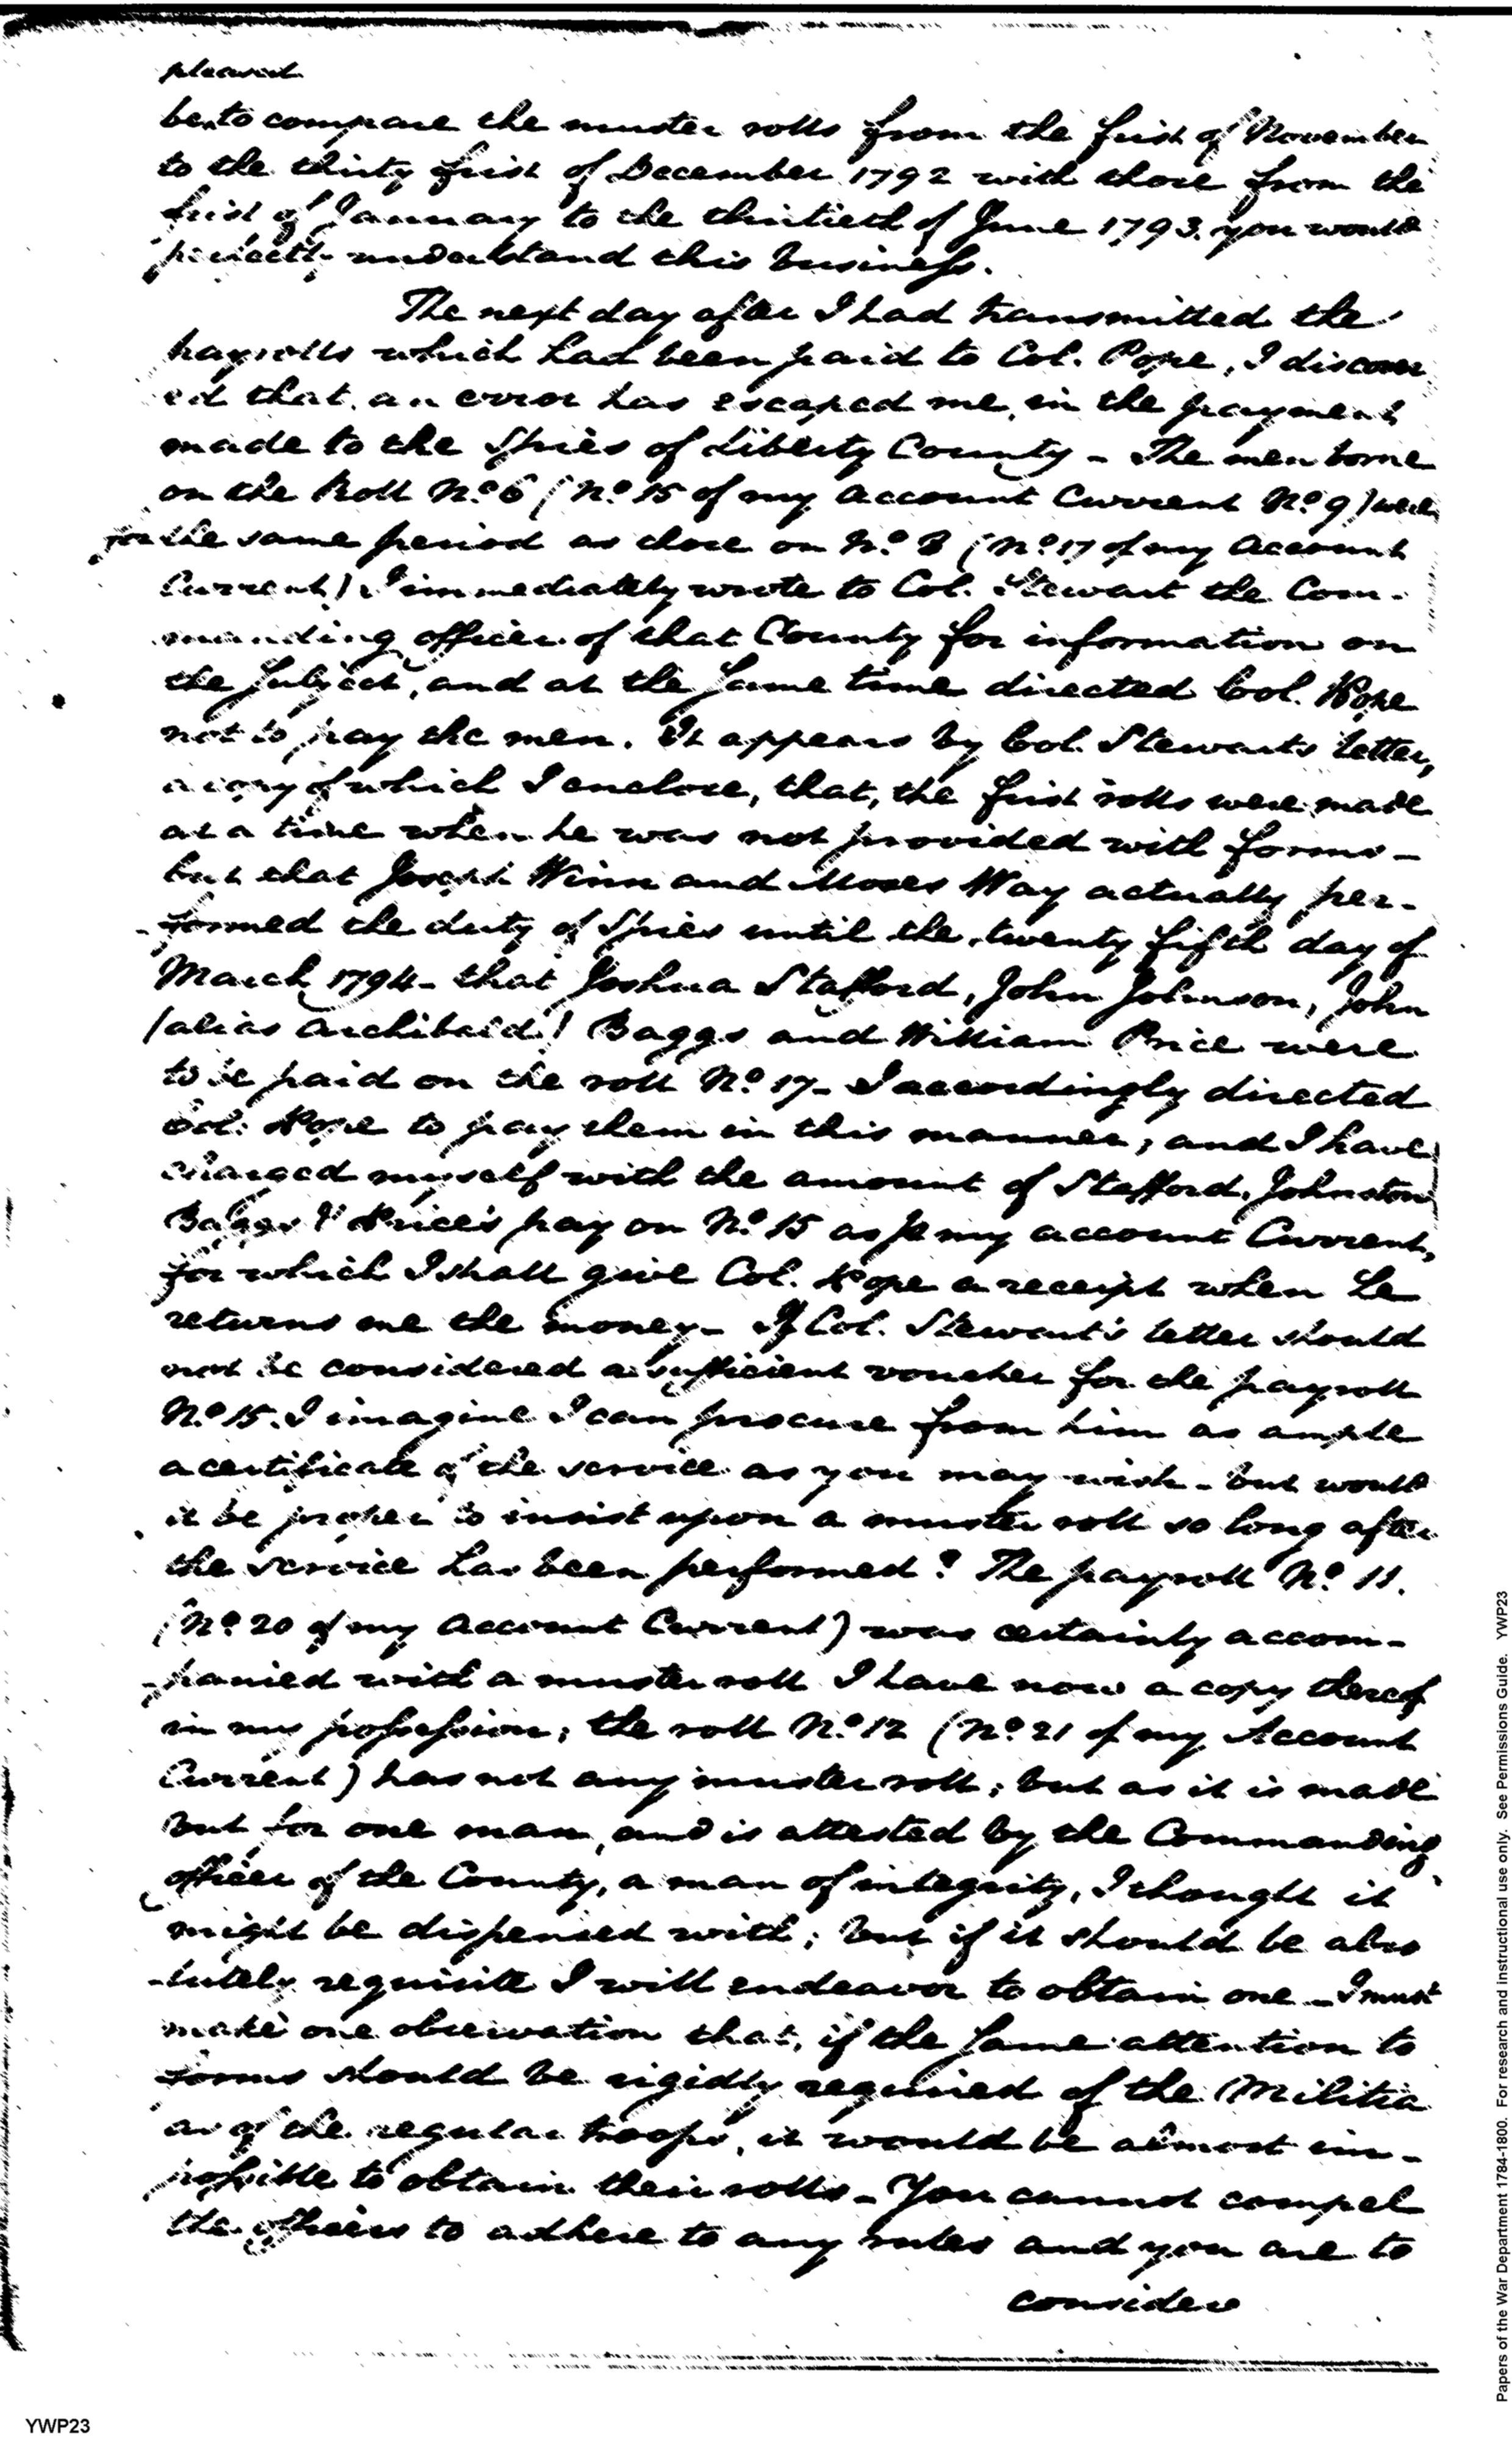 pleased
be, to compare the muster rolls from the first of November
to the thirty first of December 1792 with those from the
first of January to the thirtieth of June 1793. you would
perfectly understand this business.
The next day after I had transmitted the
payrolls which had been paid to Col. Pope, I discover
ed that, an error has escaped me, in the payment
made to the Spies of Liberty County - The men borne
on the Roll No. 6 (No. 15 of my Account Current No. 9) were
for the same period as those on No. 8 (No. 17 of my Account
Current) I immediately wrote to Col. Stewart the Com-
manding officer of that County for information on
the Subject, and at the Same time directed Col. Pope
not to pay the men. It appears by Col. Stewarts letter,
a copy of which I enclose, that, the first rolls were made
at a time when he was not provided with forms -
but that Joseph Winn and Moses Way actually per-
-formed the duty of Spies until the twenty fifth day of
March 1794 - that Joshua Stafford, John Johnson, John
(alias Archibald) Baggs and William Price were
to be paid on the roll No. 17 - I accordingly directed
Col. Pope to pay them in this manner; and I have
charged myself with the amount of Stafford, Johnston
Baggs & Price's pay on No. 15 as pr my account Current,
for which I shall give Col. Pope a receipt when he
returns me the money - If Col. Stewart's letter should
not be considered a sufficient voucher for the payroll
No. 15. I imagine I can procure from him as ample
a certificate of the service as you may wish - but would
it be proper to insist upon a muster roll so long after
the service has been performed? The payroll No. 11.
(No. 20 of my Account Current) was certainly accom-
-panied with a muster roll I have now a copy thereof
in my possession; the roll No. 12 (No. 21 of my Account
Current) has not any muster roll; but as it is made
but for one man, and is attested by the Commanding
officer of the County, a man of integrity, I thought it
might be dispensed with; but if it should be abso
-lutely requisite I will endeavor to obtain one - I must
make one observation that, if the Same attention to
forms should be rigidly required of the Militia
as of the regular troops, it would be almost im-
possible to obtain their rolls - You cannot compel
the officers to adhere to any rules and you are to
consider
YWP23
Papers of the War Department 1784-1800. For research and instructional use only. See Permissions Guide. YWP23